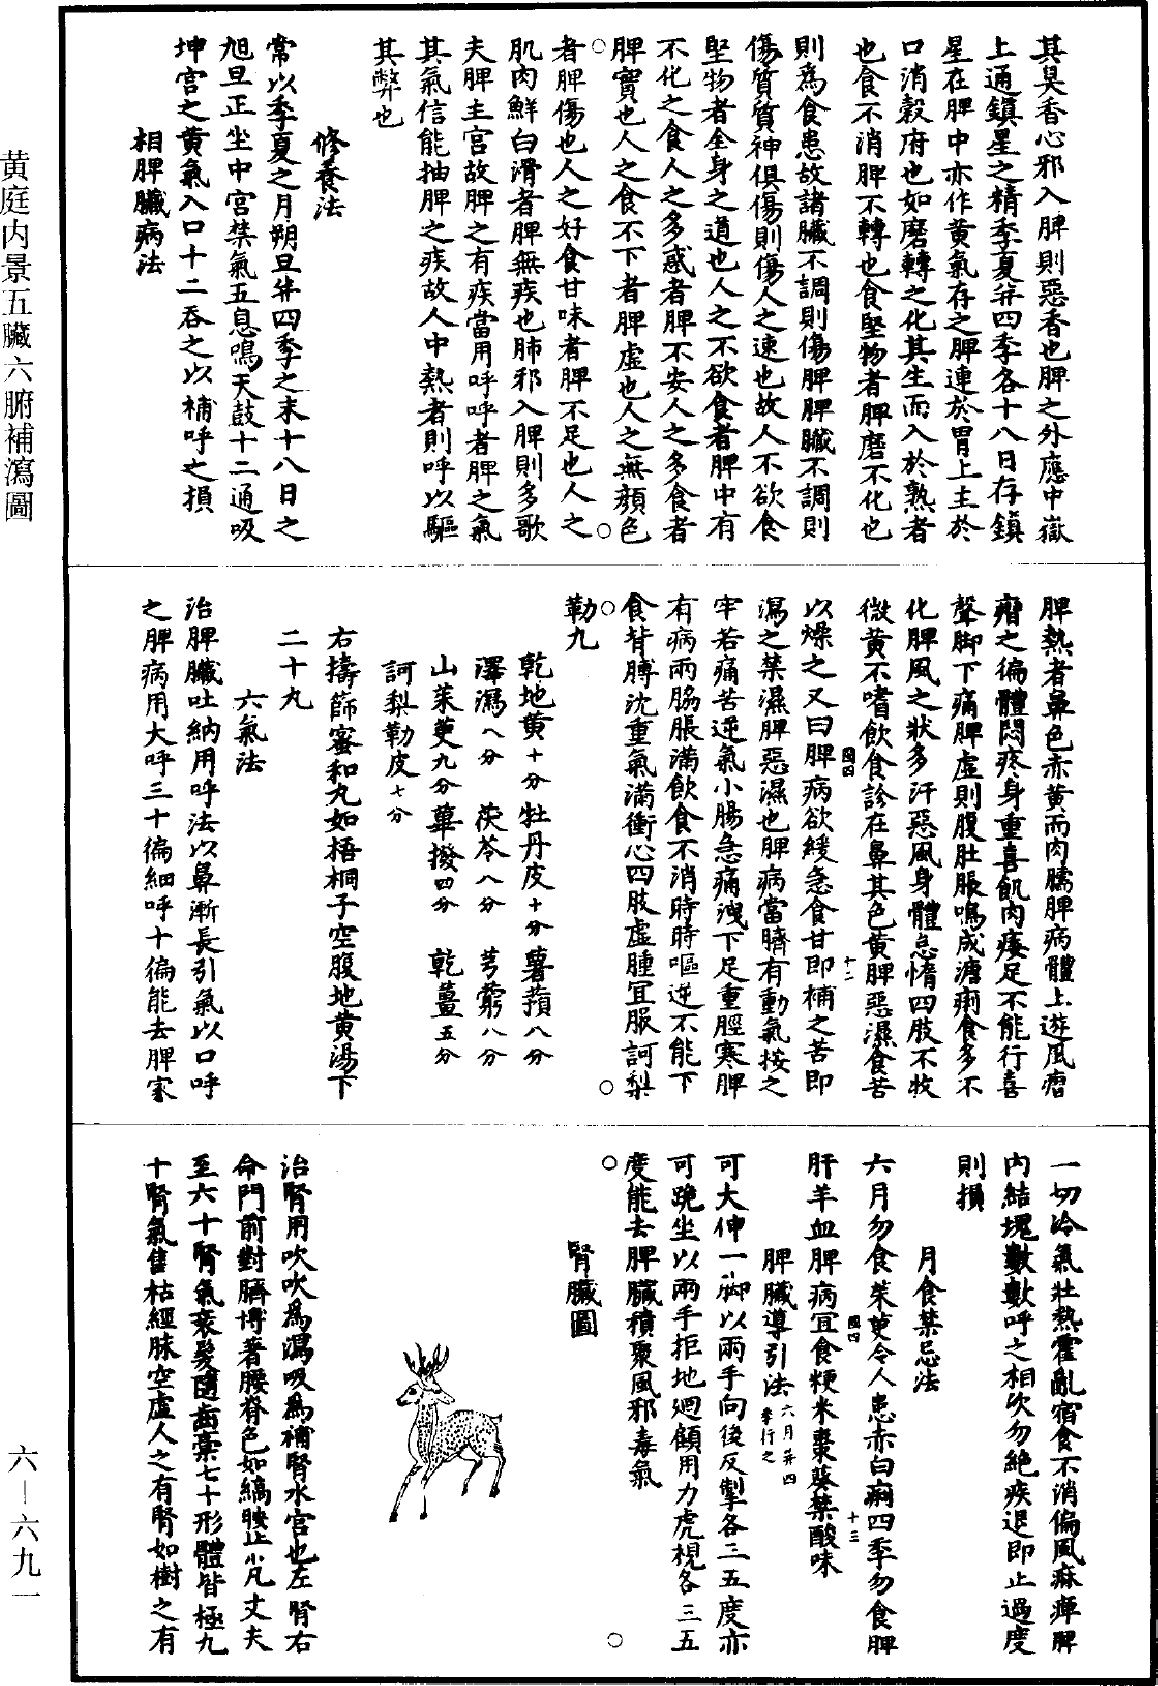 其臭香心邪入脾則惡香也脾之外應中嶽
上通鎮星之精季夏并四季各十八日存鎮
星在脾中亦作黄氣存之脾連於胃上主於
口消穀府也如磨轉之化其生而入於熟者
也食不消脾不轉也食堅物者脾磨不化也
則為食患故諸臟不調則傷脾脾臟不調則
傷質質神俱傷則傷人之速也故人不欲食
堅物者全身之道也人之不欲食者脾中有
不化之食人之多惑者脾不安人之多食者
脾實也人之食不下者脾虛也人之無顏色
者脾傷也人之好食甘味者脾不足也人之
肌肉鮮白滑者脾無疾也肺邪入脾則多歌
夫脾主宮故脾之有疾當用呼呼者脾之氣
其氣信能抽脾之疾故人中熱者則呼以驅
其弊也
修養法
常以季夏之月朔旦并四季之末十八日之
旭旦正坐中宮禁氣五息鳴天鼓十二通吸
坤宮之黄氣入口十二吞之以補呼之損
相脾臟病法
脾熱者鼻色赤黄而肉臑脾病體上遊風㿔
㿔之偏體悶疼身重喜飢肉痿足不能行喜
聲脚下痛脾虛則腹肚脹鳴成溏痢食多不
化脾風之狀多汗惡風身體怠惰四肢不收
微黄不嗜飲食診在鼻其色黄脾惡濕食苦
國四
十二
以燥之又曰脾病欲緩急食甘即補之苦即
瀉之禁濕脾惡濕也脾病當臍有動氣按之
牢若痛苦逆氣小腸急痛洩下足重脛寒脾
有病兩脇脹滿飲食不消時時嘔逆不能下
食背膊沈重氣滿衝心四肢虛腫宜服訶梨
勒九
乾地黄十分牡丹皮十分薯蕷八分
澤瀉八分 茯苓八分 芎藭八分
山茱萸九分蓽撥四分 乾薑五分
訶梨勒皮七分
右擣篩蜜和丸如梧桐子空腹地黄湯下
二十丸
六氣法
治脾臟吐納用呼法以鼻漸長引氣以口呼
之脾病用大呼三十徧細呼十徧能去脾家
一切冷氣壯熱霍亂宿食不消偏風麻痺脾
内結塊數數呼之相次勿絶疾退即止過度
則損
月食禁忌法
六月勿食茱萸令人患赤白痢四季勿食脾
國四
十三
肝羊血脾病宜食粳米棗葵禁酸味
脾臟導引法六月并四季行之
可大伸一脚以兩手向後反掣各三五度亦
可跪坐以兩手拒地廻顧用力虎視各三五
度能去脾臟積聚風邪毒氣
腎臟圖
治腎用吹吹為瀉吸為補腎水宮也左腎右
命門前對臍博著腰脊色如縞映止小凡丈夫
至六十腎氣衰髮墮齒槀七十形體皆極九
十腎氣焦枯經脉空虛人之有腎如樹之有
黄庭内景五臟六腑補瀉圖
六—六九一